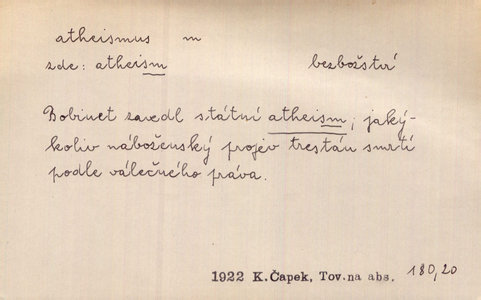 atheismus m
zde: atheism bezbožství
Bobinet zavedl státní atheism; jaký-
koliv náboženský projev trestán smrtí
podle válečného práva.
1922 K. Čapek, Tov. na abs. 180,20